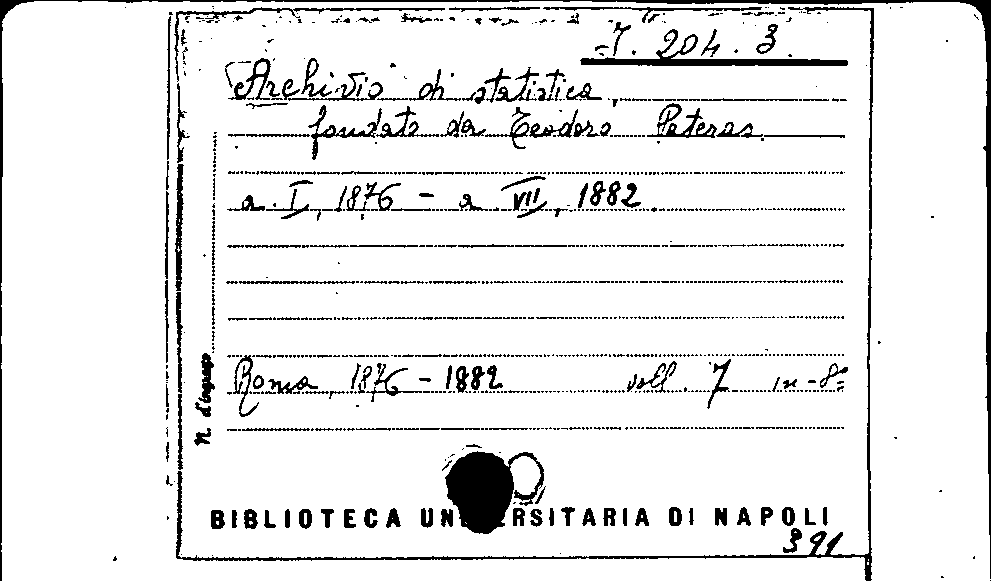 7. 204. 3.
Archivio di statistica,
fondato da Teodoro Pateras.
a. I, 1876 - a VII, 1882.
N. d'ingresso
Roma, 1876 - 1882 voll. 7 in-8°
BIBLIOTECA UNIVERSITARIA DI NAPOLI
391